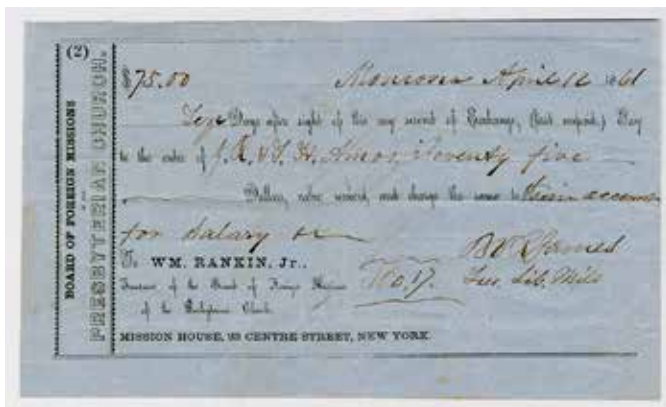 (2)
BOARD OF FOREIGN MISSIONS
PRESBYTERIAN CHURCH.
$75.00 Monrovia April 12 1861
Days after sight of this my second of Exchange, (first unpaid,) Pay
to the order of J. R. & T. H. Amos, Seventy five
Dollars, value received, and charge the same to their account
for Salary
B V R James
To WM. RANKIN, Jr., No. 17. Lib. Miss
Treasurer of the Board of Foreign Missions
of the Presbyterian Church.
MISSION HOUSE, 23 CENTRE STREET, NEW YORK.